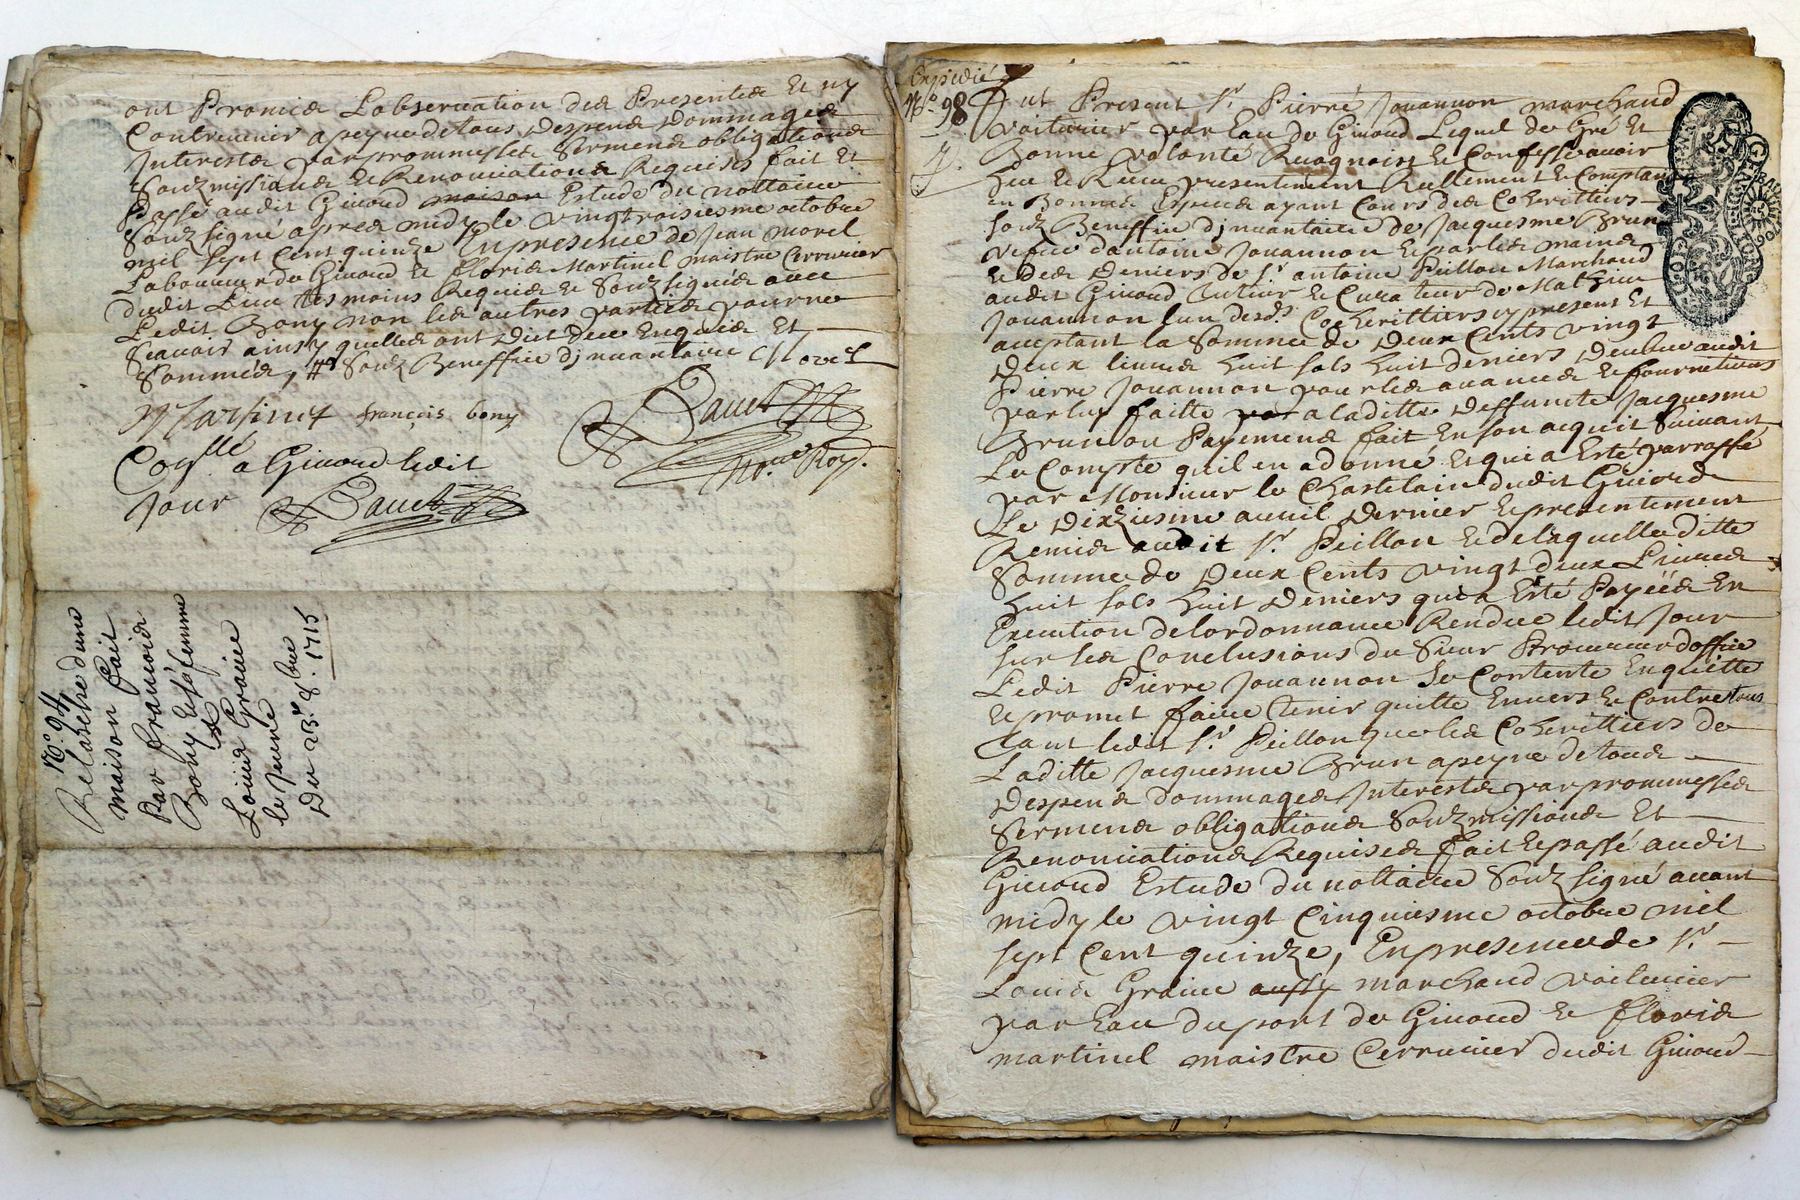 ont Promis Lobseruation des Presentes Et ny
Contreuenir a peyne de tous Despens Dommages
Interestz par prommesses Sermens obligations
Souzmissions Et Renonciations Requises fait Et
Passé audit Giuord maison Estude du nottaire
Souzsigné apres midy le Vingtroisiesme octobre
mil sept Cent quinze En presence de Jean morel
Laboureur du Giuord Et floris Martinel maistre Cerrurier
dudit Lieu tesmoins Requis Et Souzsignés auec
Ledit Bony non les autres parties pour ne
Scauoir ainsy quelles ont Dict De ce Enquis Et
Sommés, Souz Beneffice dinuantaire Morel
Martinet françois bony
Coñllé a Giuord ledit
Jour
N.º 94
Relaschе dune
maison fait
Par francois
Bony Et sa femme
Et
Louis Graine
le Jeune
Du 23.e 8.bre 1715
Expedié
N.º 98
fut Present S.r Pierre Jouannon marchand
voiturier par Eau de Giuord Lequel de Gré Et
Bonne volonté Recognoist Et Confesse auoir
heu Et Receu presentement Reellement Et Comptant
en Bonnes Especes ayant Cours des Coherittiers
souz Beneffice dinuantaire de Jacquesme Brun
vefue dantoine Jouannon Et par les mains
Et des Deniers de S.r antoine Peillon Marchand
audit Giuord Tutier Et Curateur de Mathieu
Jouannon lun desd.s Coherittiers y present Et
aceptant la Somme de Deux Cents vingt
Deux liures huit sols huit deniers Deubue audit
Pierre Jouannon pour les auances Et fournitures
par luy faitte par a laditte Deffuncte Jacquesme
Brun ou Payemens fait En son acquit Suiuant
Le Compte quil en a donné Et qui a Esté parraffé
par Monsieur le Chastelain dudit Giuord
Le Dixziesme auuil Dernier Et presentement
Remis audit S.r Peillon Et de laquelle ditte
Somme de Deux Cents vingt deux Liures
huit sols huit Deniers qui a Esté Payéé En
Execution de lordonnance Rendue ledit Jour
sur les Conclusions du Sieur Procureur doffice
Ledit Pierre Jouannon Se Contente En quitte
Et promet faire tenir quitte Enuers Et Contre tous
tant ledit S.r Peillon que les Coherittiers de
Laditte Jacquesme Brun a peyne de tous
Despens dommages Interestz par prommesses
Sermens obligations Souzmissions Et
Renonciations Requises fait Et passé audit
Giuord Estude du nottaire Souzsigné auant
midy le vingt Cinquiesme octobre mil
sept Cent quinze, En presence de S.r
Louis Graine aussy marchand voiturier
par Eau du port de Giuord Et floris
martinel maistre Cerrurier dudit Giuord